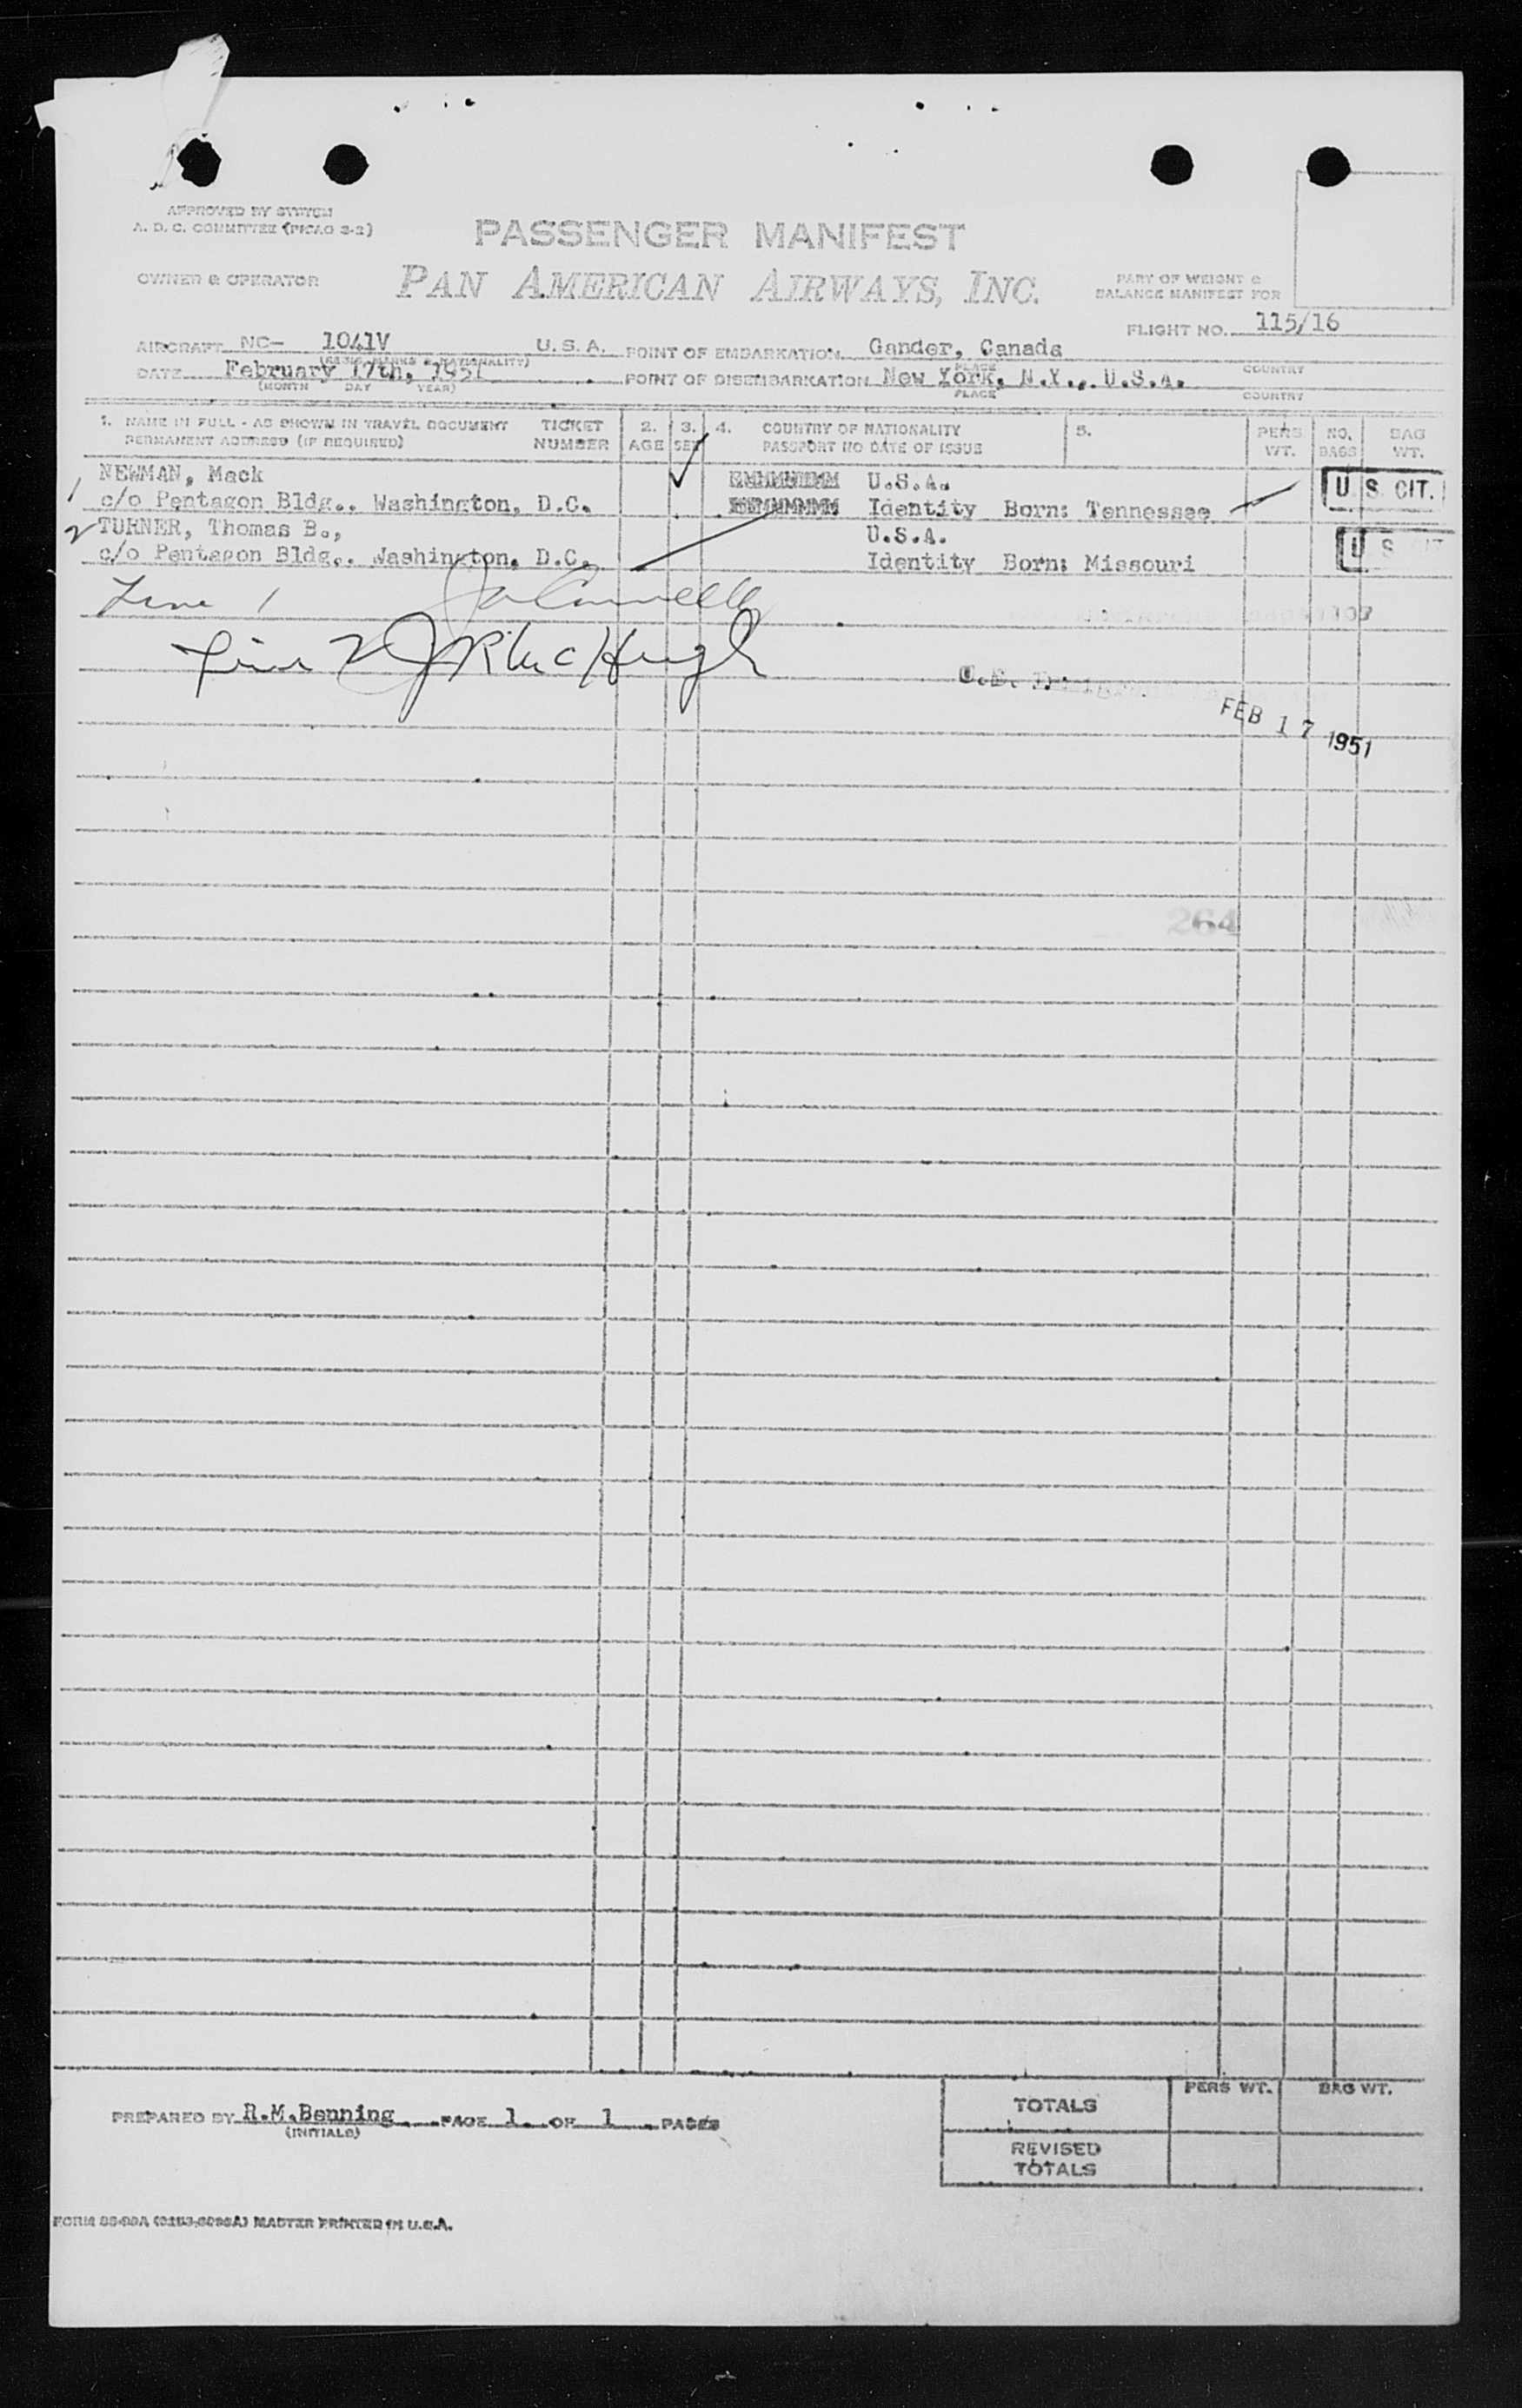 APPROVED BY SYSTEM
A. D. C. COMMITTEE (PICAO 2-2)
PASSENGER MANIFEST
OWNER & OPERATOR PAN AMERICAN AIRWAYS, INC.
PART OF WEIGHT &
BALANCE MANIFEST FOR
FLIGHT NO. 115/16
AIRCRAFT NC- 1041V U.S.A. POINT OF EMBARKATION Gander, Canada
(REG'N. MARKS & NATIONALITY) PLACE COUNTRY
DATE February 17th, 1951 POINT OF DISEMBARKATION New York, N.Y., U.S.A.
(MONTH DAY YEAR) PLACE COUNTRY
1. NAME IN FULL - AS SHOWN IN TRAVEL DOCUMENT TICKET 2. 3. 4. COUNTRY OF NATIONALITY 5. PERS NO. BAG
PERMANENT ADDRESS (IF REQUIRED) NUMBER AGE SEX PASSPORT NO DATE OF ISSUE WT. BAGS WT.
NEWMAN, Mack U.S.A. U.S. CIT.
1 c/o Pentagon Bldg., Washington, D.C. Identity Born: Tennessee
2 TURNER, Thomas B., U.S.A. U S CIT
c/o Pentagon Bldg., Washington, D.C. Identity Born: Missouri
Line 1
Line 2 J R McHugh
FEB 17 1951
264
PREPARED BY R.M.Benning PAGE 1 OF 1 PAGES
(INITIALS)
PERS WT. BAG WT.
TOTALS
REVISED
TOTALS
MASTER PRINTED IN U.S.A.